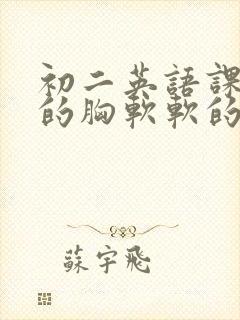 初二英語課
的胸軟軟的
蘇宇飛